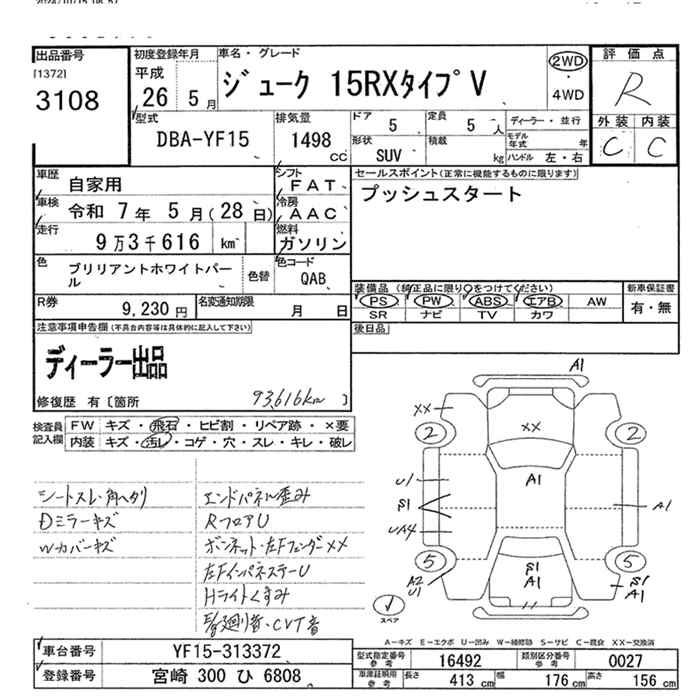 出品番号
[1372]
3108
初度登録年月
平成
26 5 月
車名・グレード
ジューク 15RXタイプV
2WD
・
4WD
評価点
R
外装 内装
C C
型式
DBA-YF15
排気量
1498
cc
ドア
5
定員
5 人
形状
SUV
積載
kg
ディーラー・並行
モデル年式 年
ハンドル 左・右
車歴 自家用
車検 令和 7 年 5 月(28 日)
走行
9 万 3 千 616 km
シフト
FAT
冷房
AAC
燃料
ガソリン
セールスポイント(正常に機能するものに限ります)
プッシュスタート
色
ブリリアントホワイトパール
色替
色コード
QAB
R券
9,230 円
名変通知期限
月 日
装備品 (純正品に限り○をつけてください)
PS PW ABS エアB AW
SR ナビ TV カワ
新車保証書
有・無
後日品
注意事項申告欄(不具合内容等は具体的に記入して下さい)
ディーラー出品
修復歴 有〔箇所 93,616km 〕
検査員記入欄
FW キズ・飛石・ヒビ割・リペア跡・×要
内装 キズ・汚レ・コゲ・穴・スレ・キレ・破レ
シートスレ・角ヘタリ
Dミラーキズ
Wカバーキズ
エンドパネル歪み
RフロアU
ボンネット・左Fフェンダー××
左FインパネステーU
Hライトくすみ
CVT音
A1
××
2
××
2
A1
U1
S1
UA4
A1
5
5
A2
U1
S1
A1
S1
A1
スペア
A－キズ E－エクボ U－凹み W－補修跡 S－サビ C－腐食 XX－交換済
車台番号 YF15-313372
登録番号 宮崎 300 ひ 6808
型式指定番号
参考
16492
類別区分番号
参考
0027
車庫証明用
参考
長さ 413 cm
幅 176 cm
高さ 156 cm